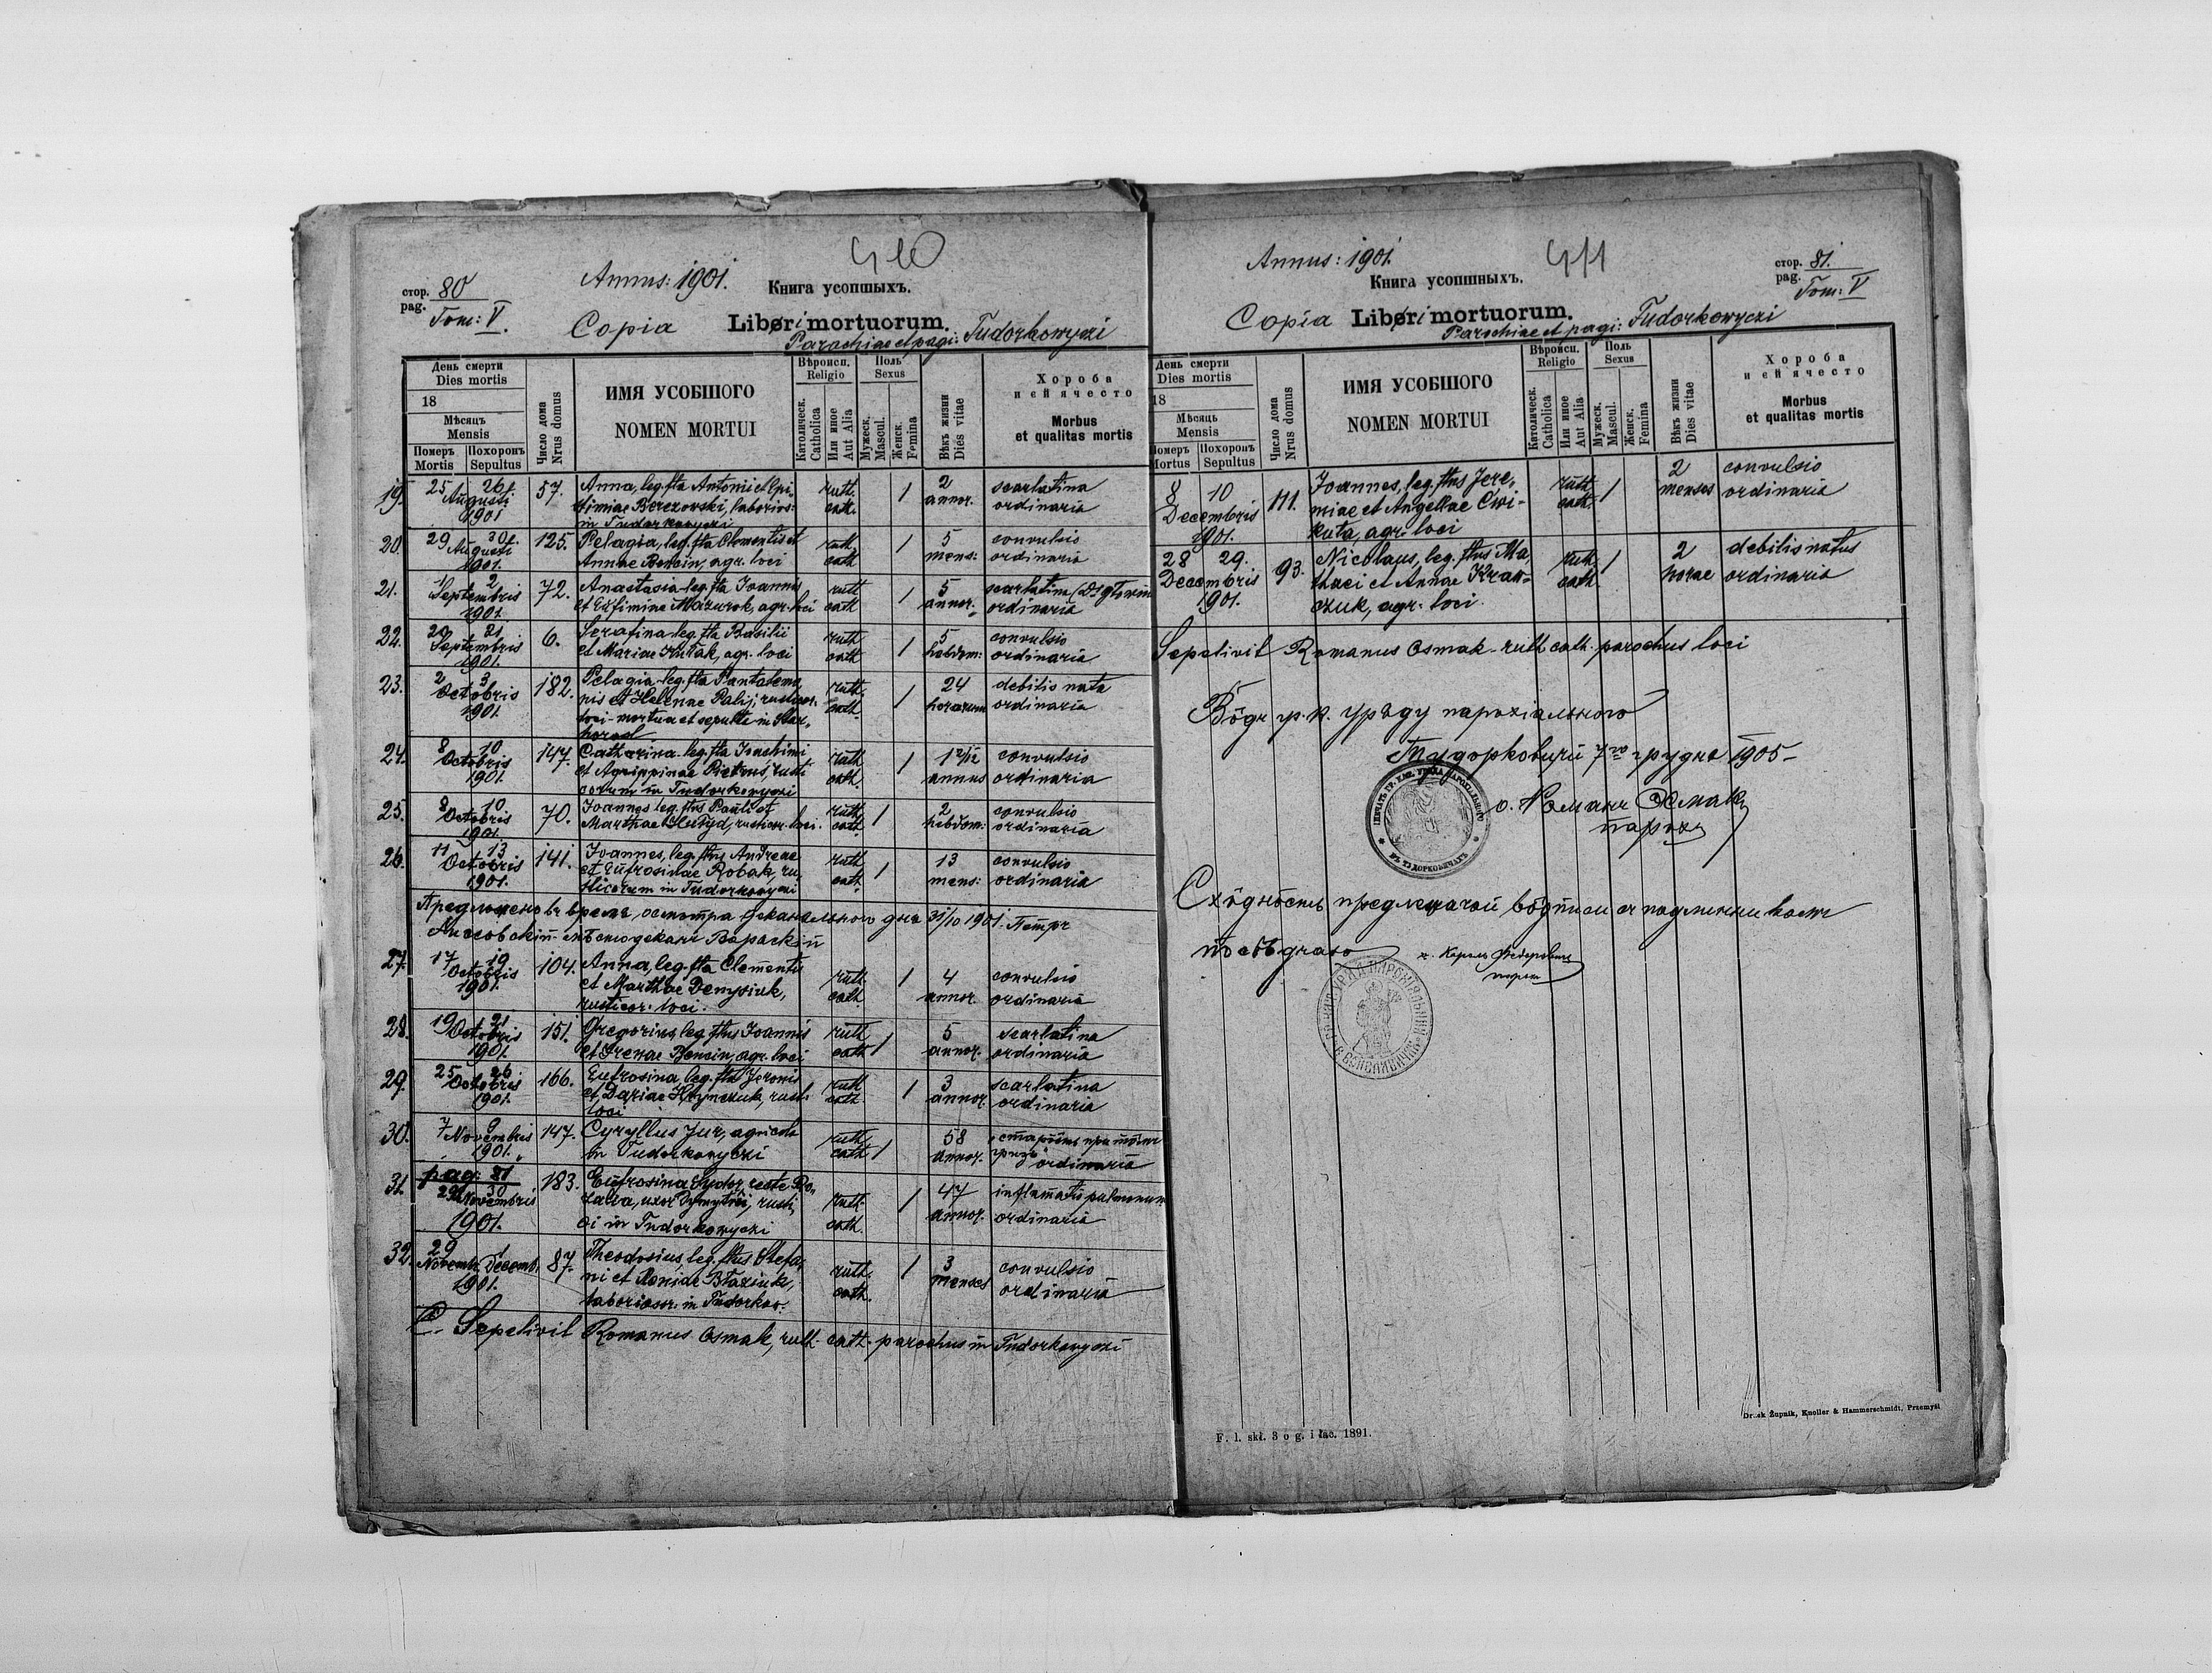 410
Annus: 1901.
стор. 80
pag.
Tom: V.
Книга усопшыхъ.
Copia Liberi mortuorum.
Parochiae et pagi: Tudorkowyczi
День смерти
Dies mortis
18
Мѣсяцъ
Mensis
Померъ Похоронъ
Mortis Sepultus
Число дома
Nrus domus
ИМЯ УСОБШОГО
NOMEN MORTUI
Вѣроисп.
Religio
Католическ.
Catholica
Или иное
Aut Alia
Поль
Sexus
Мужеск.
Mascul.
Женск.
Femina
Вѣкъ жизни
Dies vitae
Хороба
и ей ячесто
Morbus
et qualitas mortis
19. 25 26 Augusti 1901 57. Anna, leg. flia Antonii et Epi-
timiae Berezowski, laborios:
in Tudorkowyczi
ruth. cath. 1 2 annor. scarlatina ordinaria
20. 29 30. Augusti 1901. 125. Pelagia, leg. flia Clementis et
Annae Bencin, agr. loci
ruth. cath 1 5 mens: convulsio ordinaria
21. 1 2 Septembris 1901 72. Anastasia leg. flia Joannis
et Eufimiae Mazurok, agr. loci
ruth cath 1 5 annor. scarlatina ordinaria
22. 20 21 Septembris 1901. 6. Serafina leg. flia Basilii
et Mariae, agr. loci
ruth cath 1 5 hebdom: convulsio ordinaria
23. 2 3 Octobris 1901. 182. Pelagia leg. flia Pantalemo
nis et Helenae Palij, rusticor.
loci - mortua et sepulta in Star-
horod
ruth. cath. 1 24 horarum debilis nata ordinaria
24. 8 10 Octobris 1901. 147. Catharina leg. flia Joachimi
et Agrippinae, rusti
corum in Tudorkowyczi
ruth cath. 1 1 2/12 annus convulsio ordinaria
25. 8 10 Octobris 1901. 70. Joannes leg. flius Pauli et
Marthae, rusticor. loci.
ruth cath. 1 2 hebdom: convulsio ordinaria
26. 11 13 Octobris 1901. 141. Joannes, leg. flius Andreae
et Eufrosinae Robak, ru-
sticorum in Tudorkowyczi
ruth cath. 1 13 mens: convulsio ordinaria
Предложено въ время осмотра деканального дня 31/10 1901. Петръ
27. 17 19 Octobris 1901. 104. Anna, leg. flia Clementis
et Marthae Denysiuk,
rusticor. loci.
ruth. cath. 1 4 annor. convulsio ordinaria
28. 19 21 Octobris 1901. 151. Gregorius leg. flius Joannis
et Irenae Bencin, agr. loci
ruth cath 1 5 annor. scarlatina ordinaria
29. 25 26. Octobris 1901. 166. Eufrosina, leg. flia
et Dariae, rusti.
loci
ruth cath 1 3 annor. scarlatina ordinaria
30. 7 9 Novembris 1901. 147. Cyryllus Jur, agricola
in Tudorkowyczi
ruth. cath 1 58 annor. ordinaria
pag: 81
31. 29 30 Novembris 1901. 183. Eufrosina Sydor, recte Ro-
zalia, uxor Dymytrii, rusti-
ci in Tudorkowyczi
ruth. cath. 1 47 annor. inflamatio pulmonum ordinaria
32. 29 1 Novemb. Decemb. 1901. 87. Theodosius, leg. flius Stefa-
ni et Xeniae Błaziuk,
laboriosor. in Tudorkow.
ruth. cath. 1 3 menses convulsio ordinaria
Sepelivit Romanus Osmak, ruth. cath. parochus in Tudorkowyczi
Annus: 1901.
411
стор. 81.
pag.
Tom: V
Книга усопшныхъ.
Copia Liberi mortuorum.
Parochiae et pagi: Tudorkowyczi
День смерти
Dies mortis
18
Мѣсяць
Mensis
Померъ Похоронъ
Mortus Sepultus
Число дома
Nrus domus
ИМЯ УСОБШОГО
NOMEN MORTUI
Вѣроисп.
Religio
Католическ.
Catholica
Или иное
Aut Alia
Поль
Sexus
Мужеск.
Mascul.
Женск.
Femina
Вѣкъ жизни
Dies vitae
Хороба
и ей ячесто
Morbus
et qualitas mortis
8 10 Decembris 1901. 111. Joannes, leg. flius Jere-
miae et Angelae Cwi-
kuta, agr. loci
ruth cath. 1 2 menses convulsio ordinaria
28 29. Decembris 1901. 93. Nicolaus, leg. flius Ma
thaei et Annae Kraw-
czuk, agr. loci.
ruth cath. 1 2 horae debilis natus ordinaria
Sepelivit Romanus Osmak - ruth. cath. parochus loci
Вôдъ гр. к. уряду парохіального
Тудорковичи 7го грудня 1905
о. Романъ Осмакъ
парохъ
Схôднôсть предлежачой вôдписи съ подлинникомъ
посвѣдчаю
парох
F. l. skł. 3 o g. i łac. 1891.
Druk Żupnik, Knoller & Hammerschmidt, Przemyśl